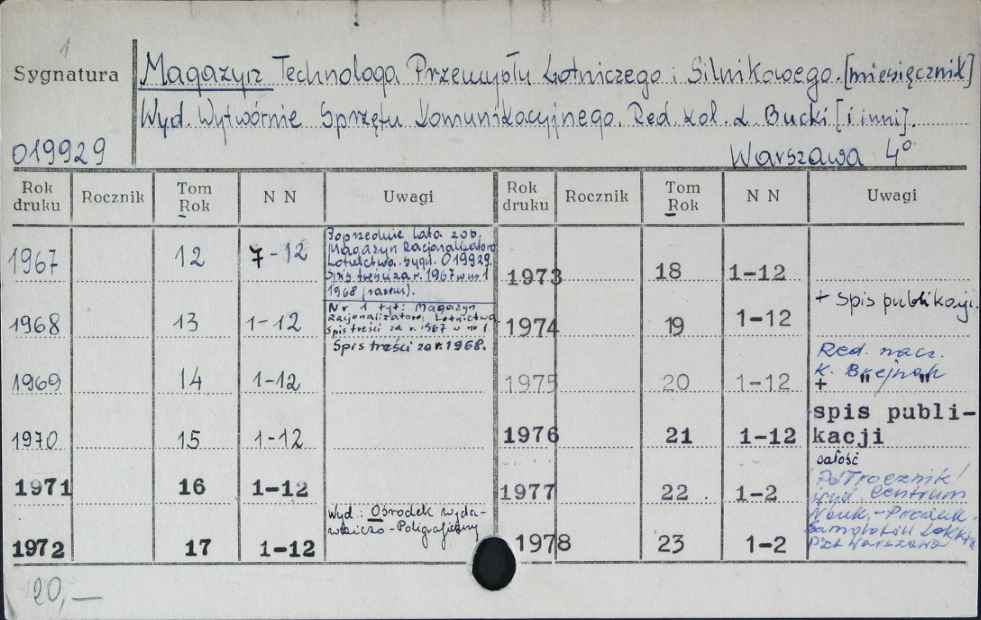 1
Sygnatura
019929
Magazyn Technologa Przemysłu Lotniczego i Silnikowego. [miesięcznik]
Wyd. Wytwórnie Sprzętu Komunikacyjnego. Red. kol. L. Bucki [i inni].
Warszawa 4°
Rok druku Rocznik Tom Rok N N Uwagi Rok druku Rocznik Tom Rok N N Uwagi
1967 12 7-12
Poprzednie lata zob.
Magazyn Racjonalizatora
Lotnictwa. sygn. 019929.
Spis treści za r. 1967 w nr 1
1968
1968 13 1-12
Nr 1 tyt: Magazyn
Racjonalizatora Lotnictwa
Spis treści za r. 1967 w nr 1
Spis treści za r. 1968.
1969 14 1-12
1970 15 1-12
1971 16 1-12
1972 17 1-12
Wyd.: Ośrodek wyda-
wniczo-Poligraficzny
1973 18 1-12
1974 19 1-12 + Spis publikacji.
1975 20 1-12
Red. nacz.
K. Brejnak
+ " "
1976 21 1-12 spis publi-
kacji
całość
1977 22 . 1-2
Półrocznik/
wyd. Centrum
Nauk.-Produk.
Samolotów Lekki
PZL Warszawa
1978 23 1-2
20,—